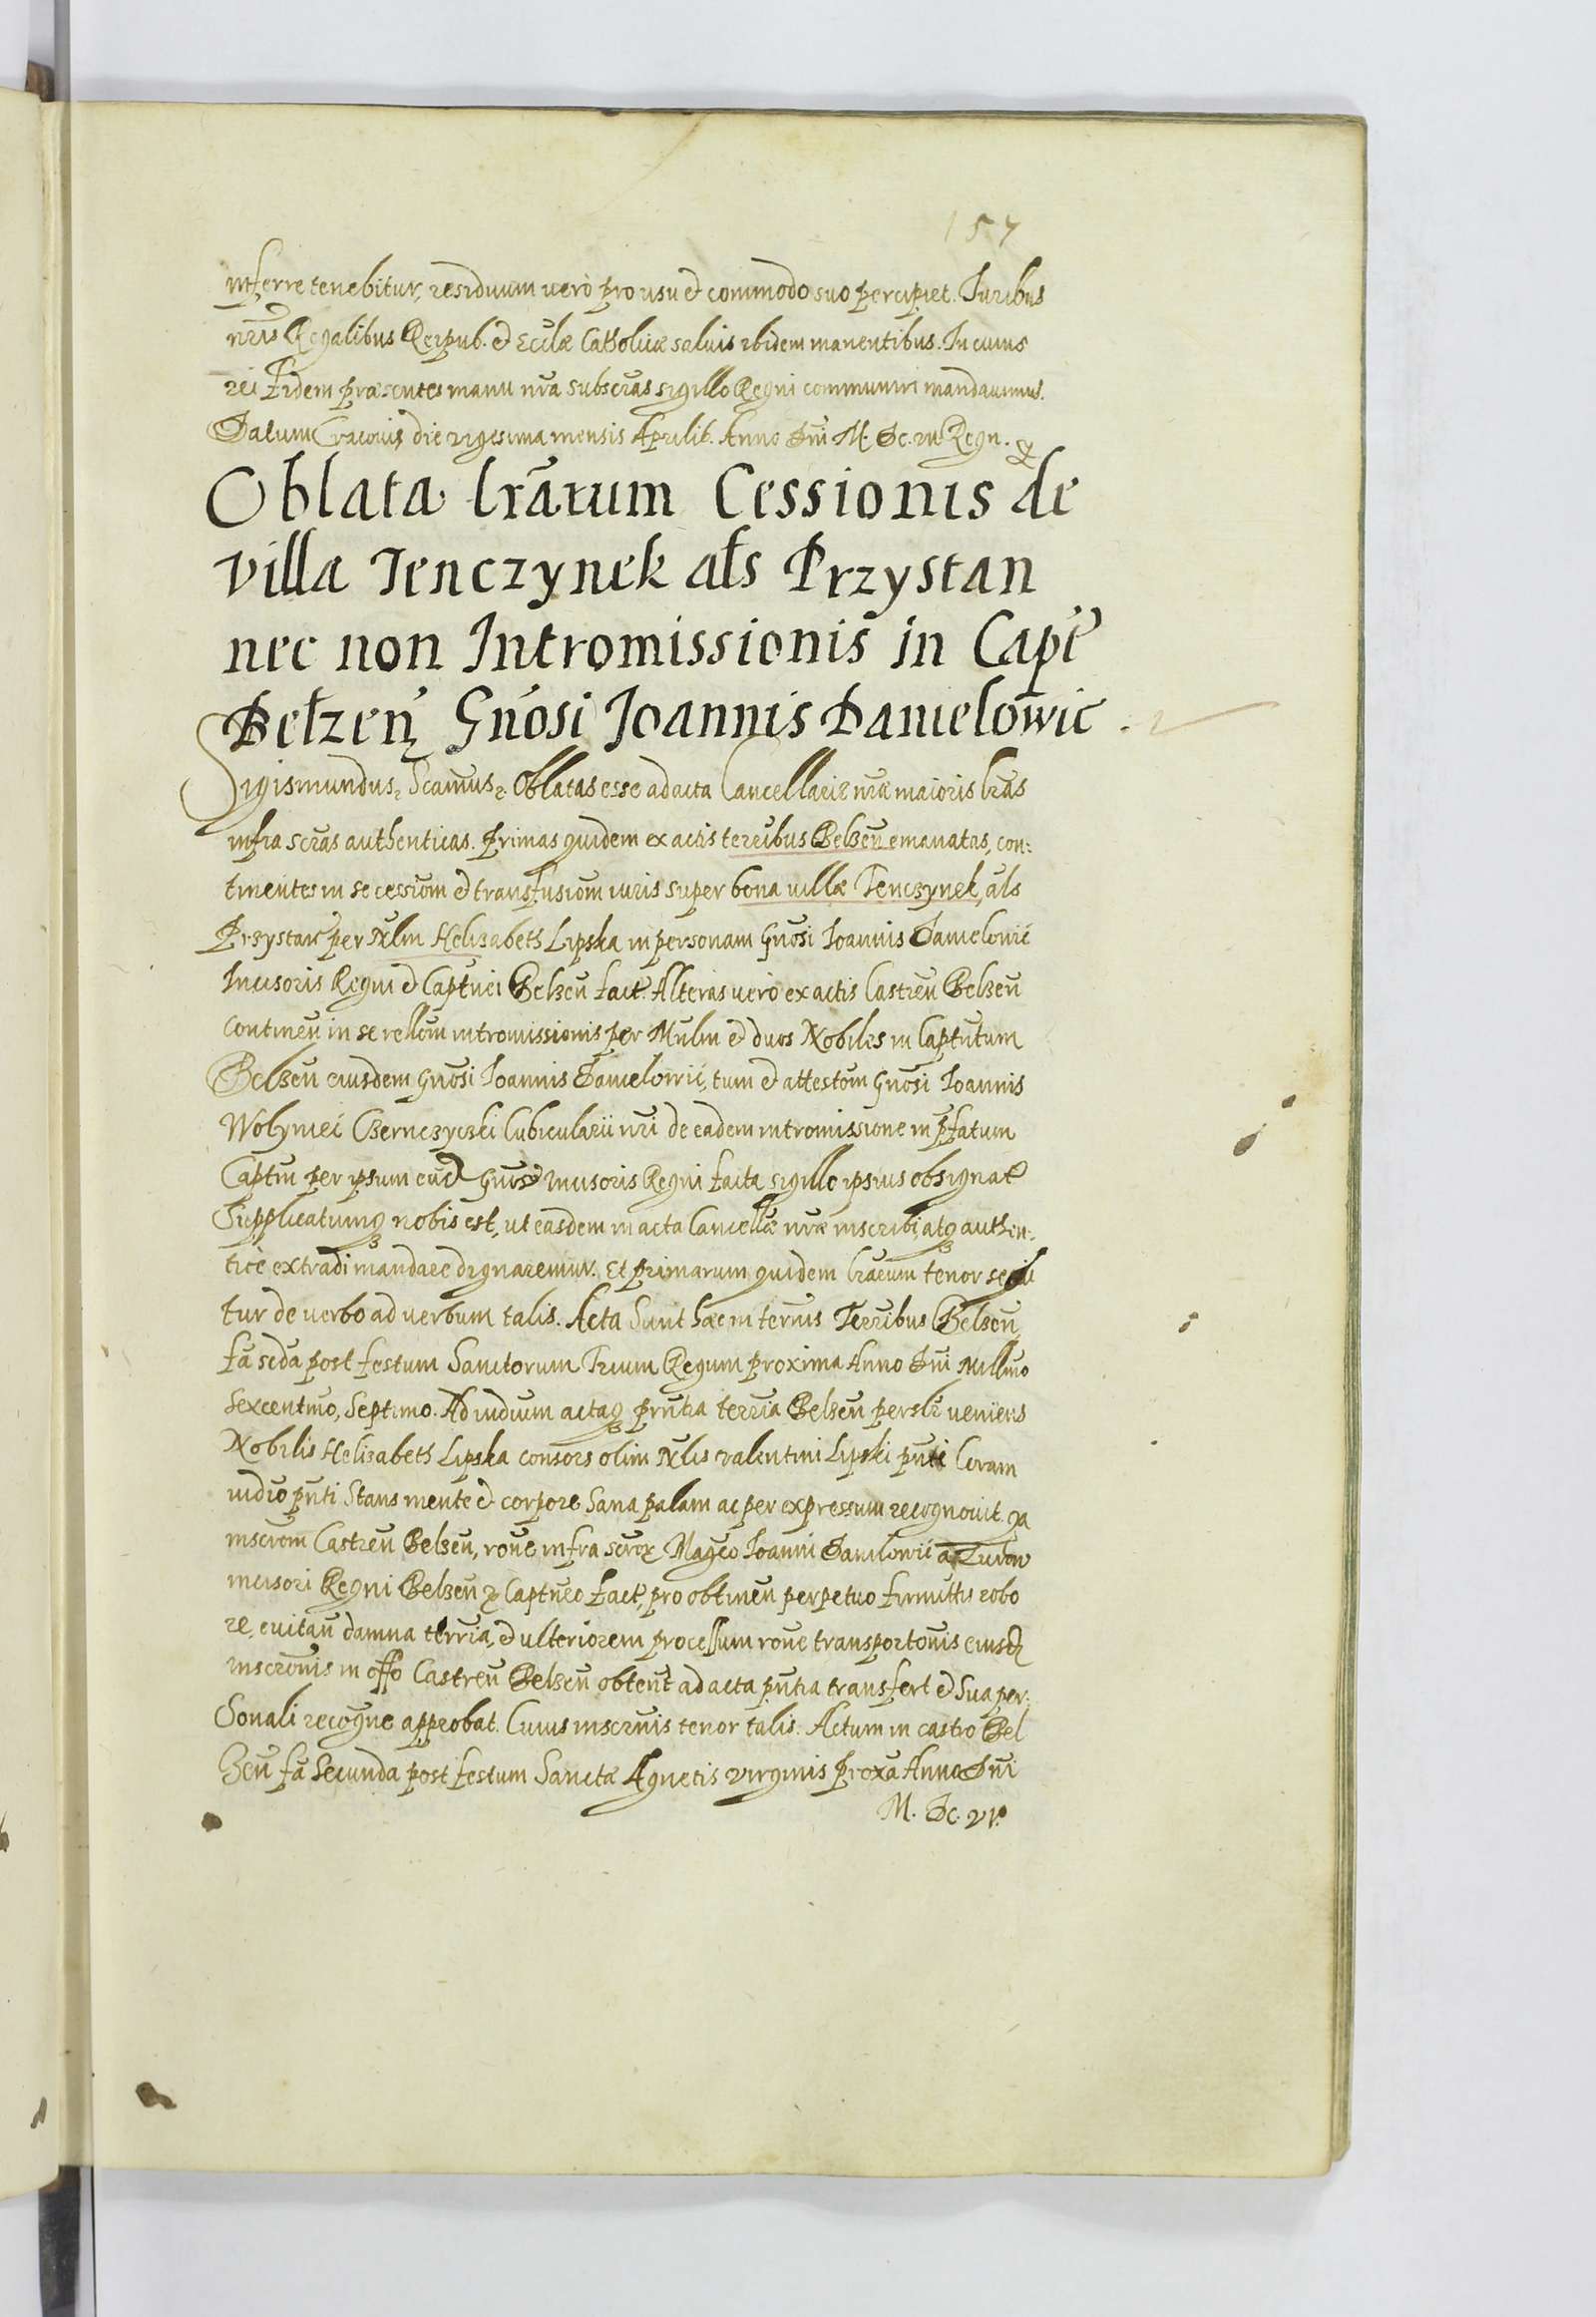 157
inferre tenebitur, residuum vero pro usu et commodo suo percipiet. Iuribus
nris Regalibus Reipub. et Eccłæ Catholicæ salvis ibidem manentibus. In cuius
rei fidem præsentes manu nra subscras sigillo Regni communiri mandavimus.
Datum Cracoviæ die vigesima mensis Aprilis. Anno Dni M. Dc. vii Regn. &
Oblata lrarum Cessionis de
villa Tenczynek als Przystan
nec non Intromissionis in Capt
Bełzen Gnosi Joannis Danielowic
Sigismundus, Scamus. Oblatas esse ad acta Cancellariæ nræ maioris lras
infra scras authenticas. Primas quidem ex actis terribus Belzen emanatas, con:
tinentes in se cessiom et transfusiom iuris super bona villæ Tenczynek, als
Przystan per Nlm Helizabeth Lipska in personam Gnosi Joannis Danielowic
Incisoris Regni et Captnei Belzen fact. Alteras vero ex actis Castren Belzen
continen in se rellom intromissionis per Mnlm et duos Nobiles in Captntum
Belzen eiusdem Gnosi Joannis Danielowic, tum et attestom Gnosi Joannis
Wolymei Czernczyczki Cubicularii nri de eadem intromissione in pfatum
Captm per ipsum eud Gnos Incisoris Regni facta sigillo ipsius obsignat
Supplicatumq nobis est, ut easdem in acta Cancellæ nræ inscribi, atq authen:
tice extradi mandare dignaremur. Et primarum quidem lrarum tenor sequi
tur de verbo ad verbum talis. Acta Sunt hæc in ternis Terribus Belzen
fa scda post festum Sanctorum Trium Regum proxima Anno Dni Millmo
sexcentmo, Septimo. Ad iudium actaq pntia terria Belzen perslr veniens
Nobilis Helizabeth Lipska consors olim Nlis Valentini Lipski pnti Coram
iudio pnti Stans mente et corpore Sana palam ac per expressum recognovit. qa
inscrom Castren Belzen, rone infra scrox Magco Joanni Danilowic a Zurow
incisori Regni Belzen & Captneo fact, pro obtinen perpetuo firmittis robo
re, evitan damna terria, et ulteriorem processum rone transportonis eiusd
inscronis in offo Castren Belzen obtent ad acta pntia transfert et Sua per:
Sonali recogne approbat. Cuius inscrnis tenor talis. Actum in castro Bel
Zen fa Secunda post festum Sanctæ Agnetis virginis Proxa Anno Dni
M. Dc. vi.